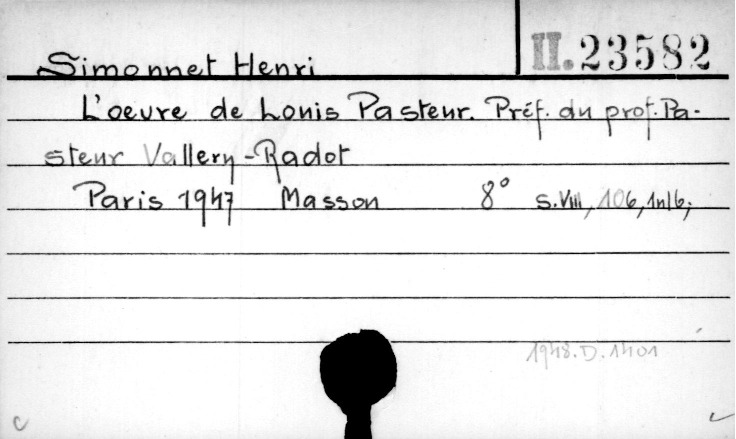 Simonnet Henri II. 23582
L'oeuvre de Louis Pasteur. Préf. du prof. Pa-
steur Vallery-Radot
Paris 1947 Masson 8° s. VIII, 106, 1nlb;
1948.D.1401
c